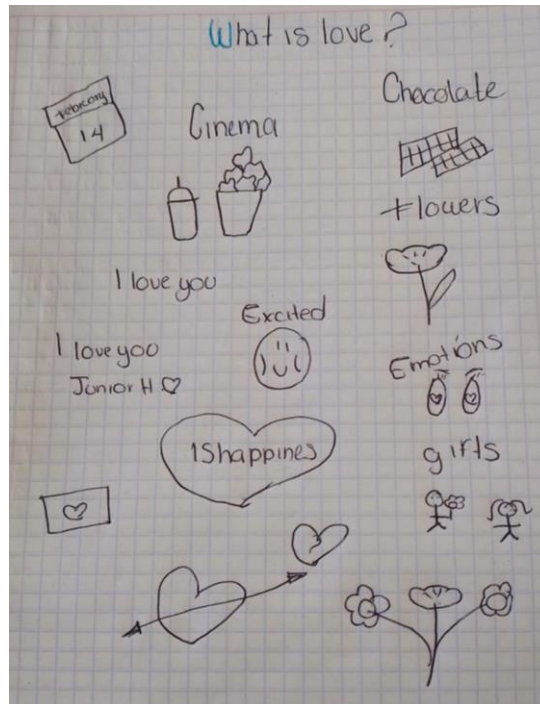 What is love?
February
14
Cinema
Chocolate
Flowers
I love you
Excited
I love yoo
Junior H
Emotions
IS happines
gifts